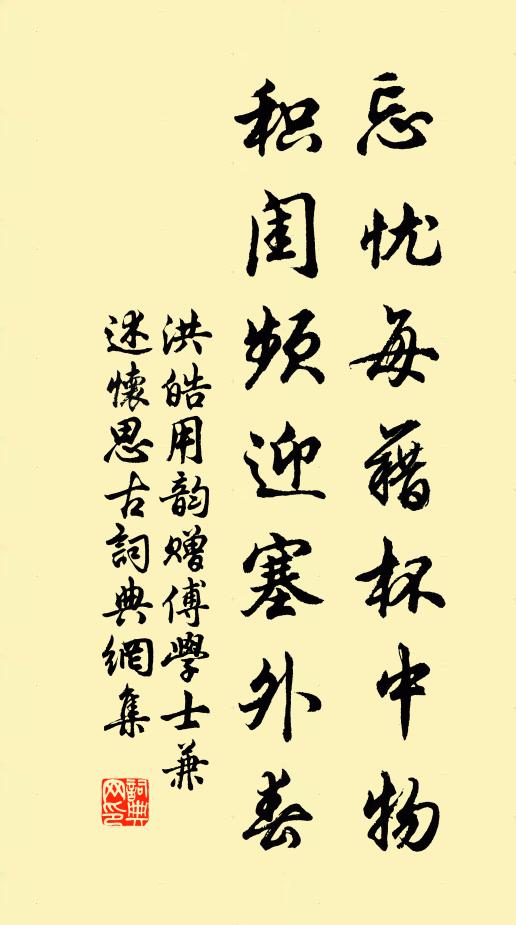 忘忧每藉杯中物
积闰频迎塞外春
洪皓用韵赠傅學士兼
述懷思古詞典網集
詞典网印